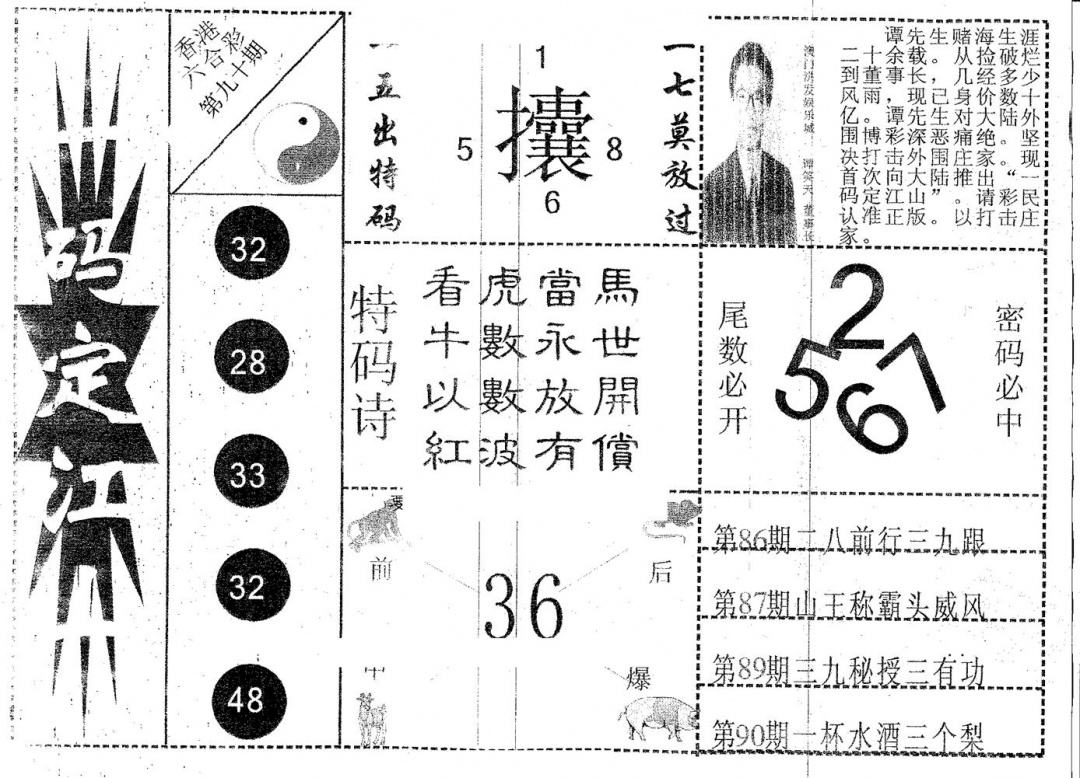 码定江
香港
六合彩
第九十期
32
28
33
32
48
一五出特码
1
5
攮
8
6
一七莫放过
澳门洪发娱乐城
谭笑天 董事长
谭先生赌海生涯
二十余载。从捡破烂
到董事长，几经多少
风雨，现已身价数十
亿。谭先生对大陆外
围博彩深恶痛绝。坚
决打击外围庄家。现
首次向大陆推出“一
码定江山”。请彩民
认准正版。以打击庄
家。
特码诗
看虎當馬
牛數永世
以數放開
紅波有償
尾数必开
2
5
7
6
密码必中
前
后
36
爆
第86期二八前行三九跟
第87期山王称霸头威风
第89期三九秘授三有功
第90期一杯水酒三个梨